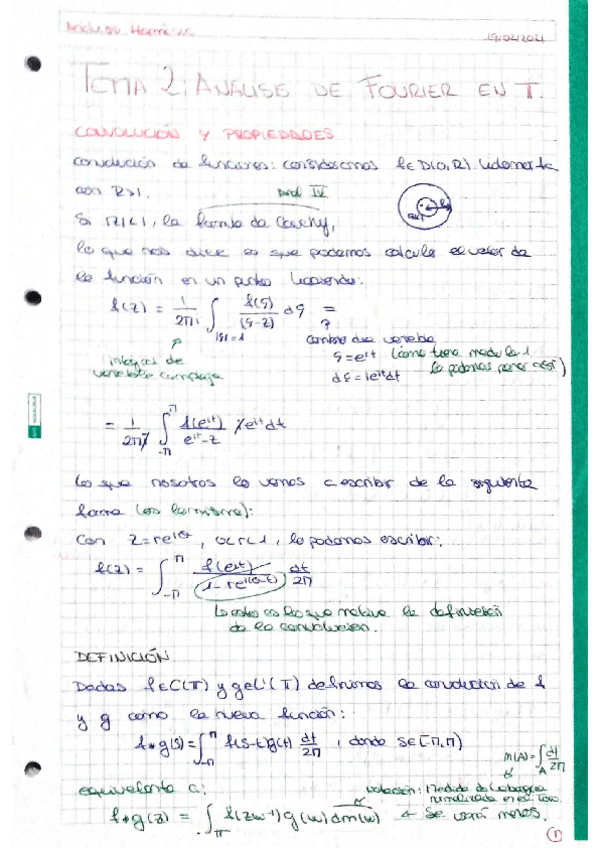 19/02/2021
TEMA 2: ANÁLISIS DE FOURIER EN T.
CONVOLUCIÓN Y PROPIEDADES
convolución de funciones: consideremos f∈D(0,R) holomorfa
con R>1.
Si |z|<1, la fórmula de Cauchy,
lo que nos dice es que podemos calcular el valor de
la función en un punto haciendo:
f(z) = 1/2πi ∫|ξ|=1 f(ξ)/(ξ-z) dξ =
integral de
variable compleja
cambio de variable
ξ=e^{it} (como tiene módulo 1
lo podemos poner así)
dξ=ie^{it}dt
= 1/2πi ∫_{-π}^{π} f(e^{it})/(e^{it}-z) ie^{it}dt
Lo que nosotros lo vamos a escribir de la siguiente
forma (es lo mismo):
Con z=re^{iθ}, 0<r<1, lo podemos escribir:
f(z) = ∫_{-π}^{π} f(e^{it})/(1-re^{i(θ-t)}) dt/2π
Esto es lo que motiva la definición
de la convolución.
DEFINICIÓN
Dadas f∈C(T) y g∈L¹(T) definimos la convolución de f
y g como la nueva función:
f*g(s)=∫_{-π}^{π} f(s-t)g(t) dt/2π, donde s∈[-π,π)
m(A)=∫_A dt/2π
equivalente a:
notación: Medida de Lebesgue
normalizada en el toro.
f*g(z) = ∫_T f(zw⁻¹)g(w)dm(w) ← Se usará menos.
1